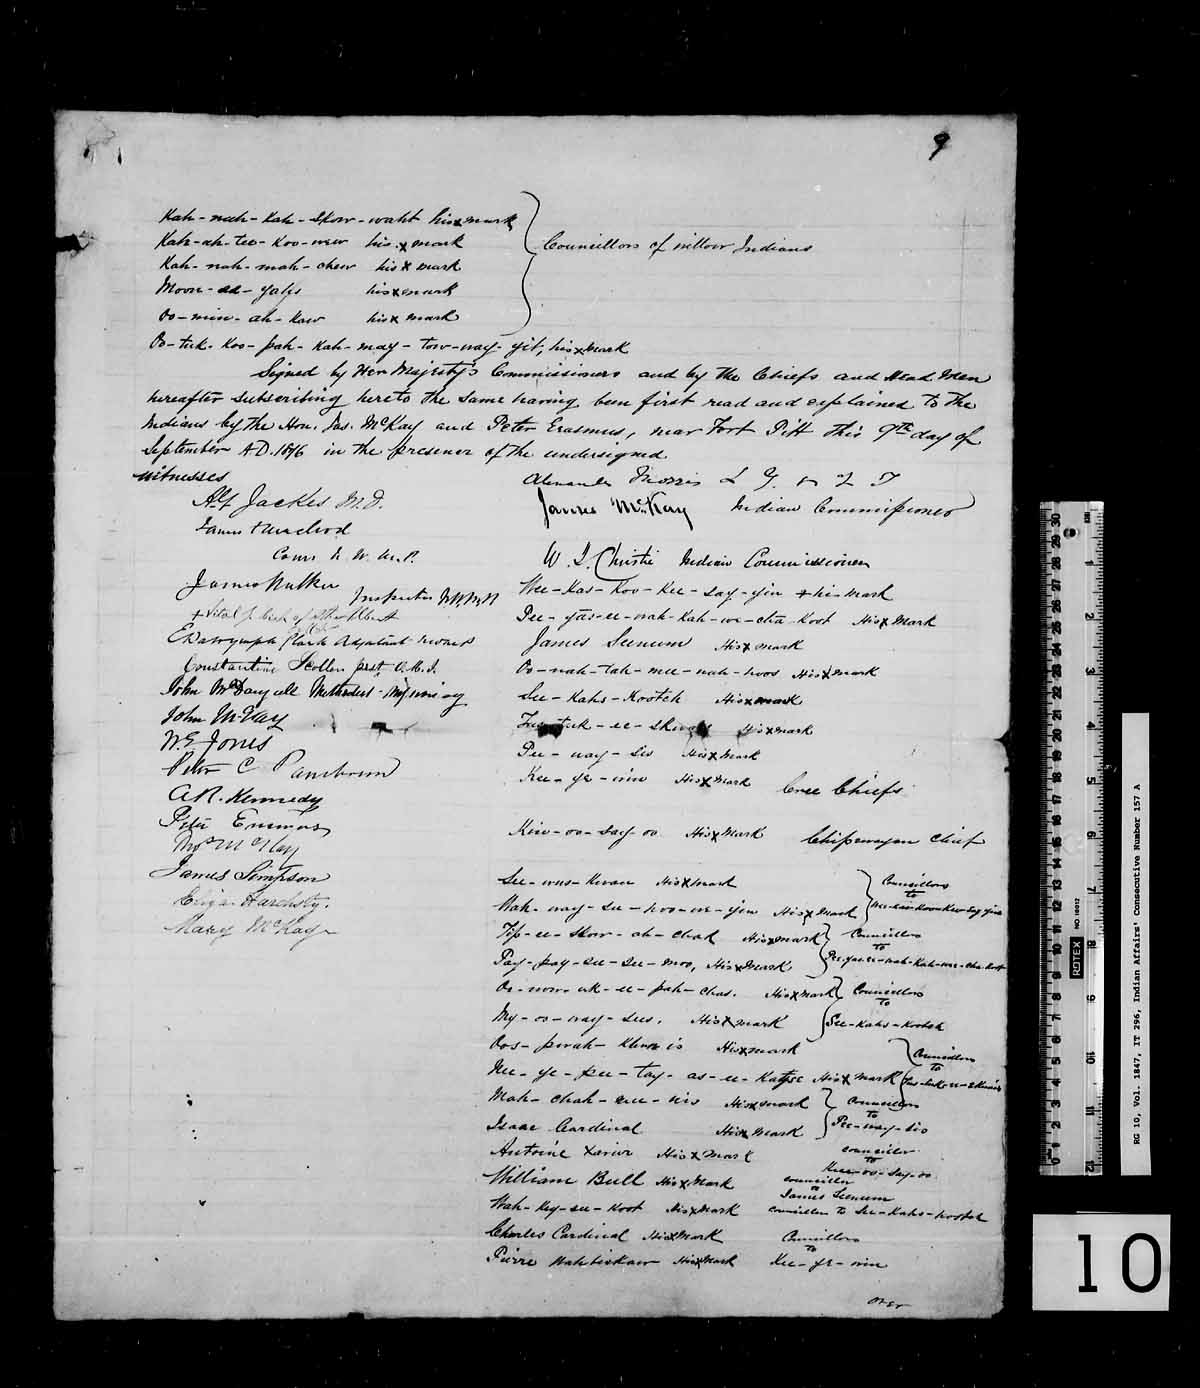 9
Kah-nah-kah-skow-waht his x mark
Kah-ah-tee-koo-new his x mark
Kah-nah-mah-chew his x mark
Moon-as-yahs his x mark
Oo-min-ah-kaw his x mark
Councillors of willow Indians
Oo-tuk-koo-pah-kah-may-tow-way-yit, his x mark
Signed by Her Majesty's Commissioners and by the Chiefs and Head Men
hereafter subscribing hereto the same having been first read and explained to the
Indians by the Hon. Jas. McKay and Peter Erasmus, near Fort Pitt this 9th day of
September A.D. 1876 in the presence of the undersigned
witnesses
A.G. Jackes M.D.
James Macleod
Com. N. W. M. P.
James Walker Inspector N.W.M.P.
+ Vital J. Bish of St Albert
E Dalrymple Clark Adjutant N.W.M.P
Constantine Scollen priest O.M.I.
John McDougall Methodist Missionary
John McKay
W.E. Jones
Peter C Pambrun
A.R. Kennedy
Peter Erasmus
Thos McKay
James Simpson
Eliza Hardisty.
Mary McKay
Alexander Morris L G. N W T
James McKay Indian Commissioner
W. J. Christie Indian Commissioner
Wee-kas-koo-kee-say-yin + his mark
Pee-yas-ee-wah-kah-we-cha-koot His x Mark
James Seenum His x mark
Oo-nah-tah-mee-nah-hoos His x mark
See-kahs-kootch His x mark
tuk-ee-skwa His x mark
Pee-way-sis His x Mark
Kee-ye-win His x Mark
Cree Chiefs
Kin-oo-say-oo His x Mark Chipewayan Chief
See-was-kwan His x mark
Wah-way-see-hoo-we-yin His x Mark
Councillors
to
Wee-kas-koo-kee-say-yin
Tip-ee-skow-ah-chak His x mark
Pay-pay-see-see-moo, His x Mark
Councillors
to
Pee-yas-ee-wah-kah-we-cha-koot
Oo-now-uk-ee-pah-chas. His x Mark
My-oo-way-sees. His x mark
Councillors
to
See-kahs-kootch
Oos-pwah-khan-is His x mark
Nee-ye-pee-tay-as-ee-kayse His x mark
Councillors
to
Mah-chah-mee-nis His x mark
Isaac Cardinal His x Mark
Councillors
to
Pee-way-sis
Antoine Xavier His x Mark
councillor
to
Kin-oo-say-oo
William Bull His x Mark
councillor
to
James Seenum
Wah-key-see-koot His x Mark councillor to See-kahs-kootch
Charles Cardinal His x Mark
Pierre Wahbiskaw His x Mark
Councillors
to
Kee-ye-win
over
ROTEX
NO. 10012
RG 10, Vol. 1847, IT 296, Indian Affairs' Consecutive Number 157 A
10